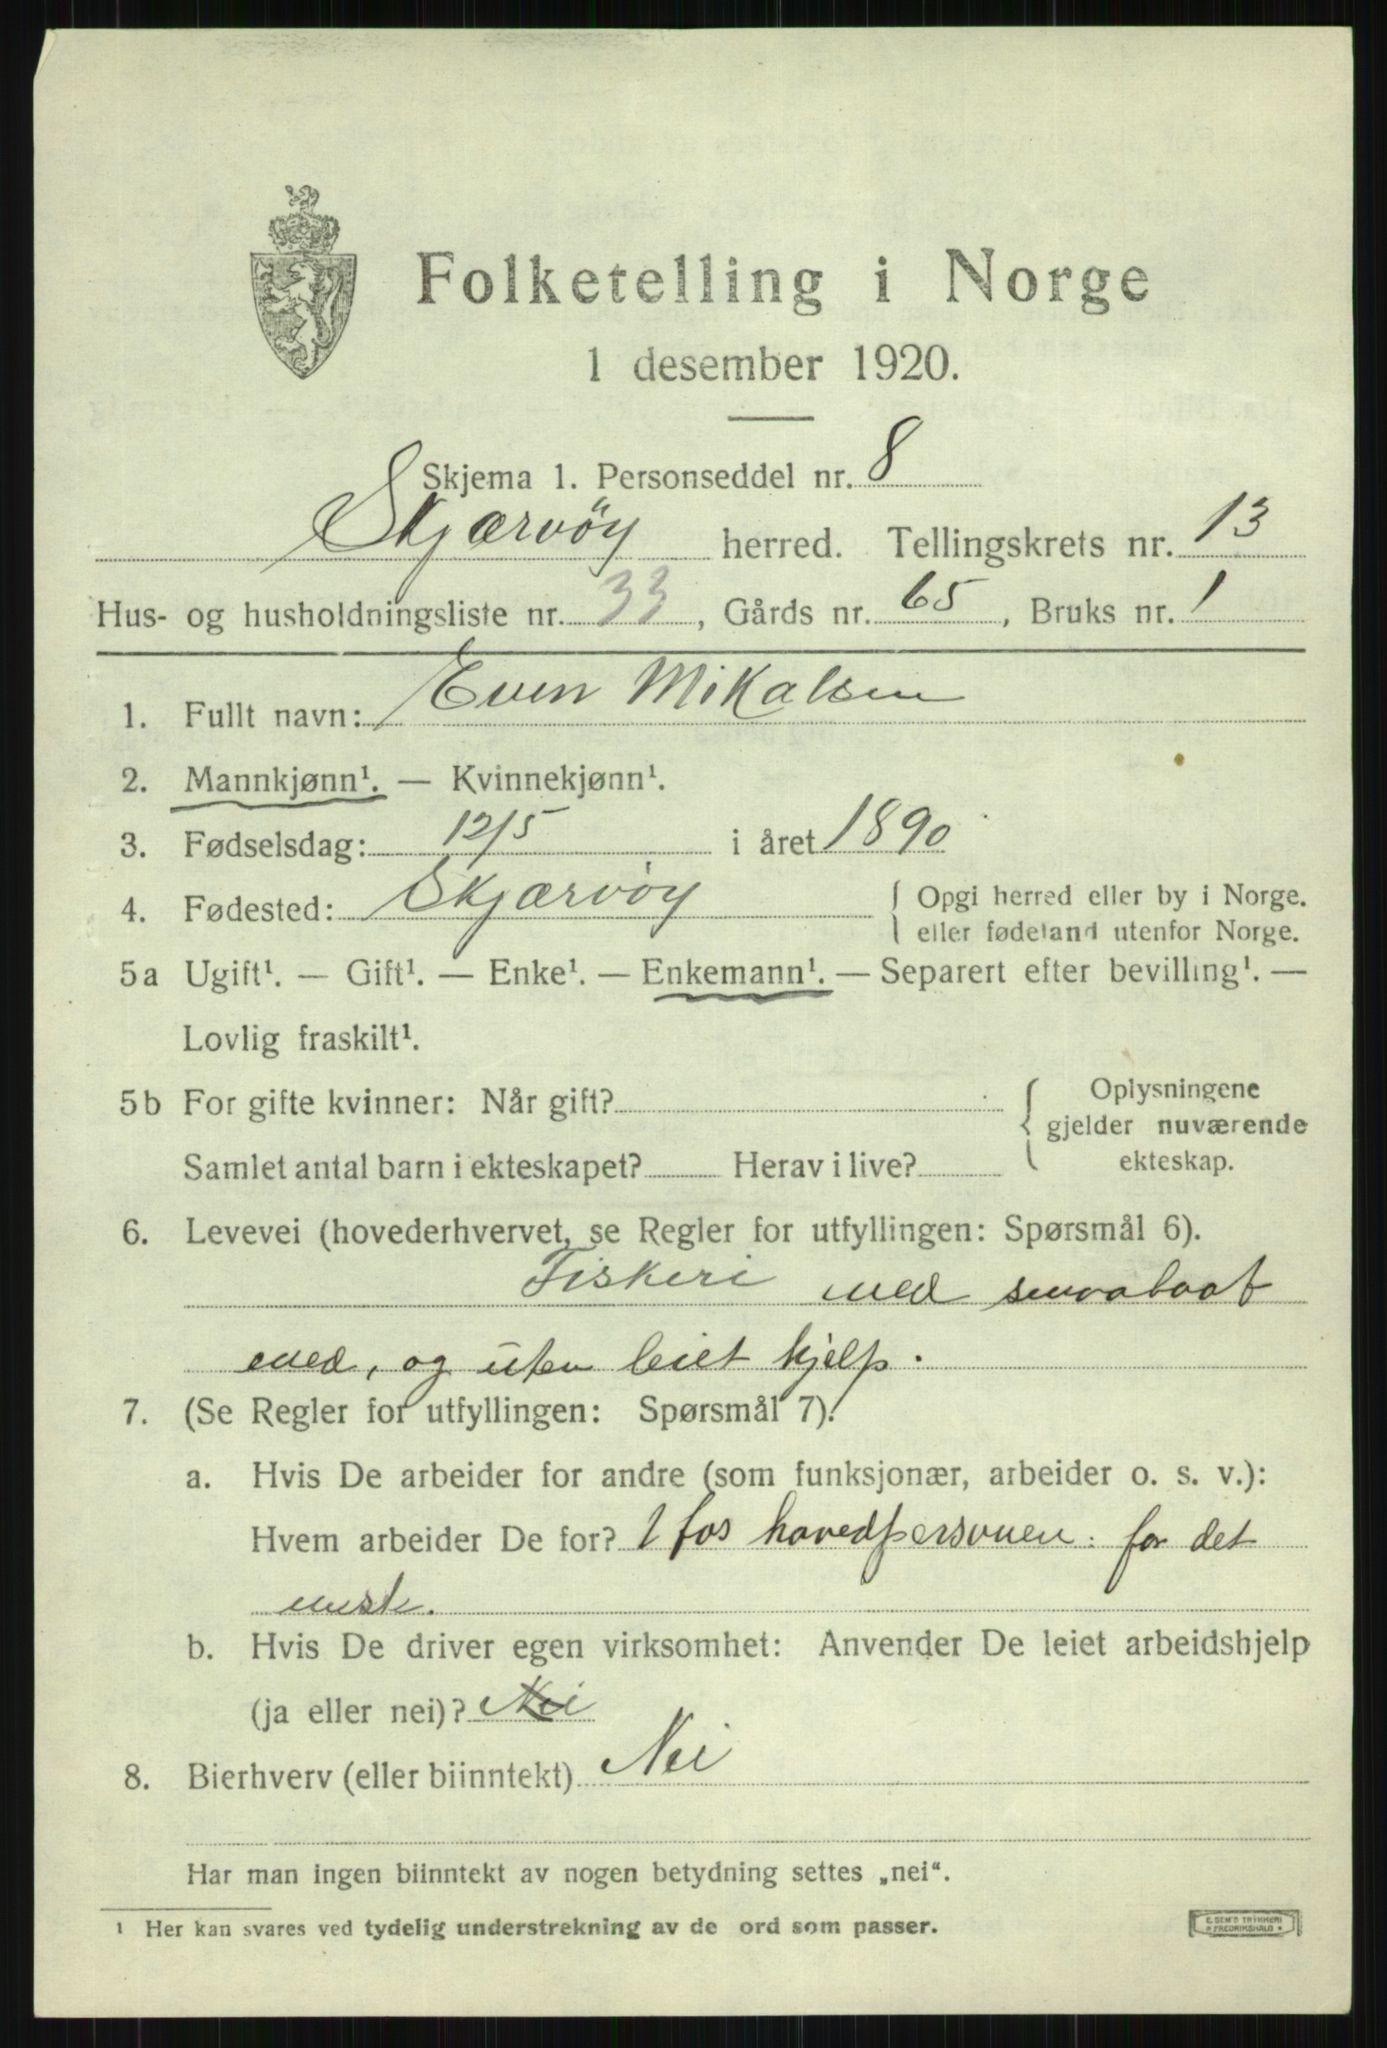 Folketelling i Norge
1 desember 1920.
Skjema 1. Personseddel nr. 8
Skjærvöy herred. Tellingskrets nr. 13
Hus- og husholdningsliste nr. 33, Gårds nr. 65, Bruks nr. 1
1. Fullt navn: Even Mikalsen
2. Mannkjønn¹. — Kvinnekjønn¹.
3. Fødselsdag: 12/5 i året 1890
4. Fødested: Skjærvöy { Opgi herred eller by i Norge.
eller fødeland utenfor Norge.
5a Ugift¹. — Gift¹. — Enke¹. — Enkemann¹. — Separert efter bevilling¹. —
Lovlig fraskilt¹.
5b For gifte kvinner: Når gift? { Oplysningene
gjelder nuværende
Samlet antal barn i ekteskapet? Herav i live? ekteskap.
6. Levevei (hovederhvervet, se Regler for utfyllingen: Spørsmål 6).
Fiskeri med smaabaat
med, og uten leiet hjelp.
7. (Se Regler for utfyllingen: Spørsmål 7).
a. Hvis De arbeider for andre (som funksjonær, arbeider o. s. v.):
Hvem arbeider De for? hovedpersonen. for det
meste.
b. Hvis De driver egen virksomhet: Anvender De leiet arbeidshjelp
(ja eller nei)? Nei
8. Bierhverv (eller biinntekt) Nei
Har man ingen biinntekt av nogen betydning settes „nei“.
¹ Her kan svares ved tydelig understrekning av de ord som passer.
E. SEM'S TRYKKERI
FREDRIKSHALD